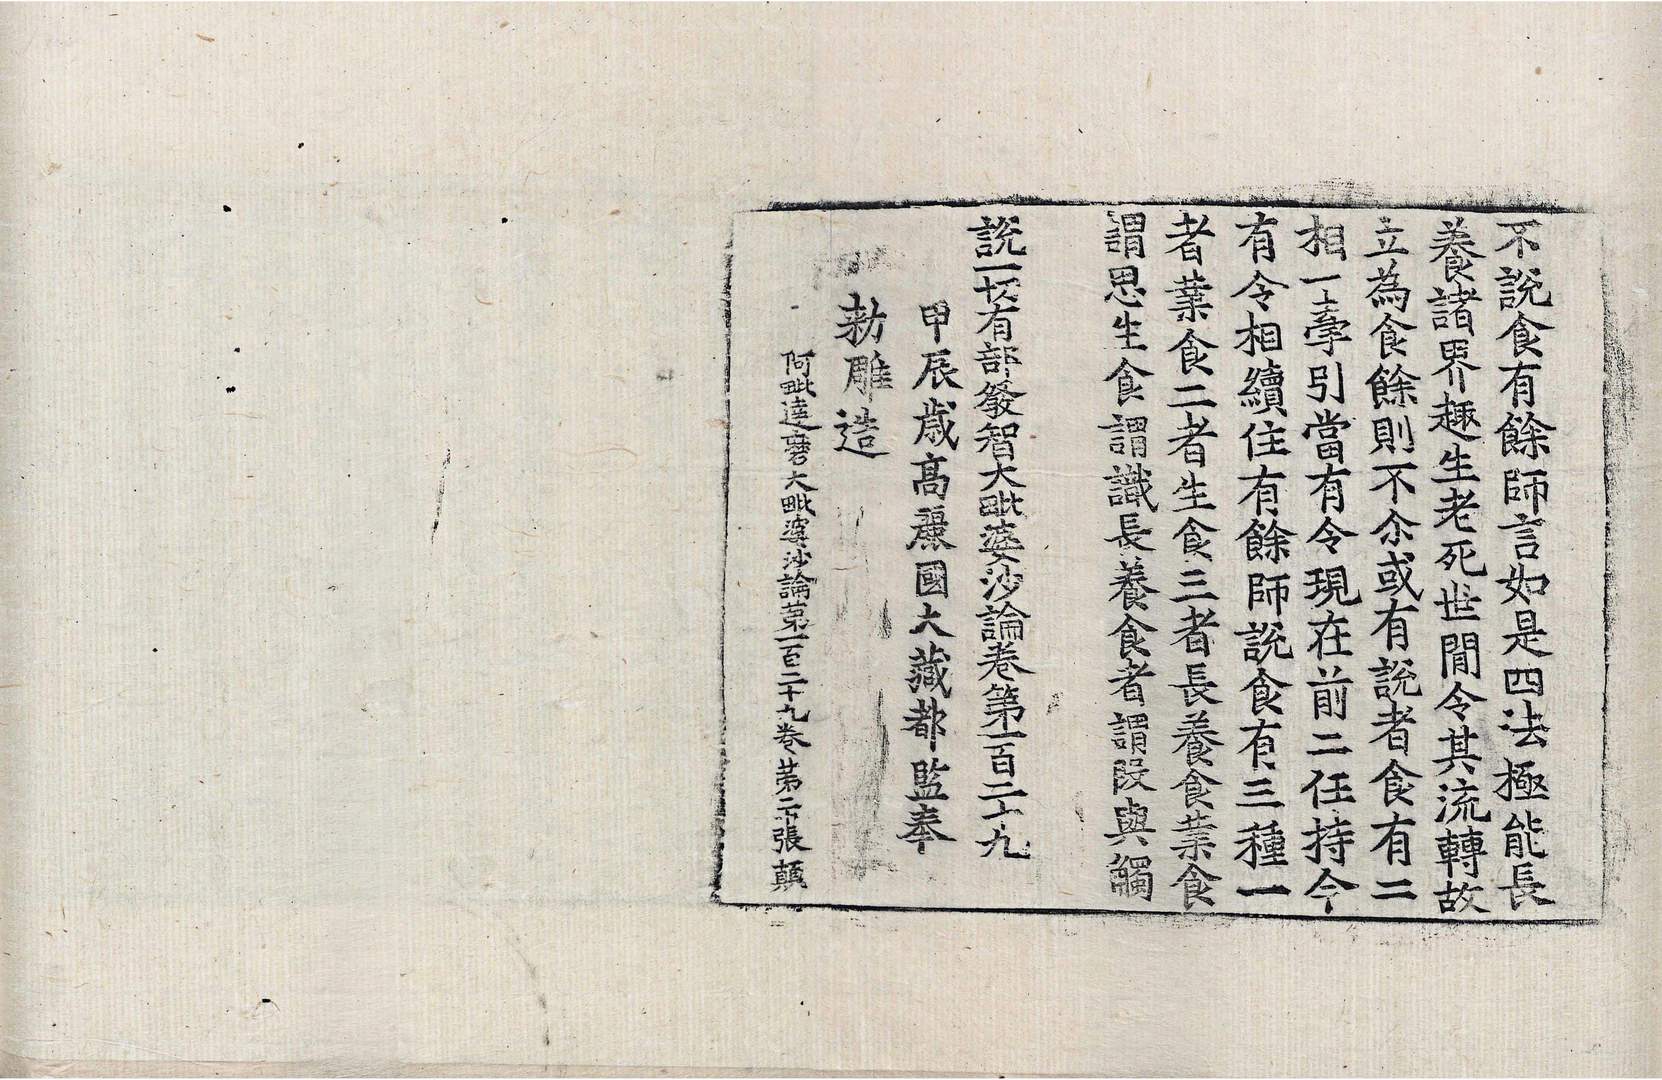 不說食有餘師言如是四法極能長
養諸界趣生老死世間令其流轉故
立為食餘則不尒或有說者食有二
相一牽引當有令現在前二任持今
有令相續住有餘師說食有三種一
者業食二者生食三者長養食業食
謂思生食謂識長養食者謂段與觸
說一切有部發智大毗婆沙論卷第一百二十九
甲辰歲高麗國大藏都監奉
勅雕造
阿毗達磨大毗婆沙論第一百二十九卷 第二十張 顛